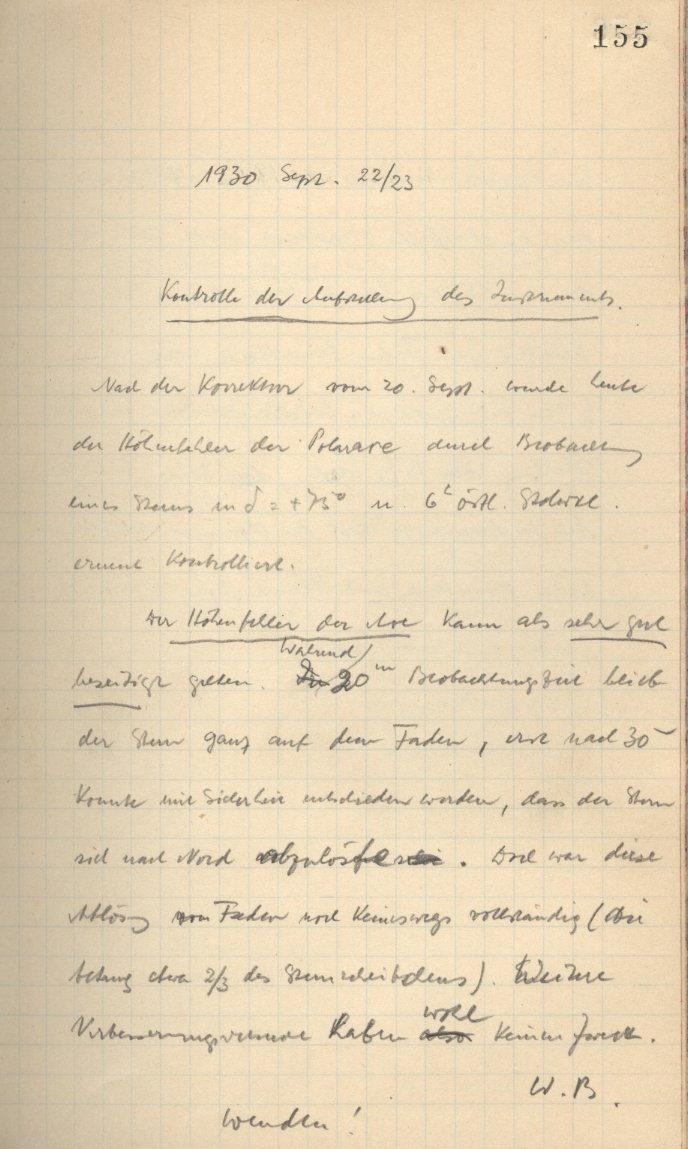 155
1930 Sept. 22/23
Kontrolle der Aufstellung des Instruments.
Nach der Korrektur vom 20. Sept. wurde heute
der Höhenfehler der Polaraxe durch Beobachtung
eines Sterns in δ = +75° u. 6h östl. Stdwkl.
erneut kontrolliert.
Der Höhenfehler der Axe kann als sehr gut
während
beseitigt gelten. In 20m Beobachtungszeit blieb
der Stern ganz auf dem Faden, erst nach 30m
konnte mit Sicherheit entschieden werden, dass der Stern
sich nach Nord ablöste. Doch war diese
Ablösung vom Faden noch keineswegs vollständig (sie
betrug etwa 2/3 des Sternscheibchens). Weitere
wohl
Verbesserungsversuche haben also keinen Zweck.
W. B.
Wenden!